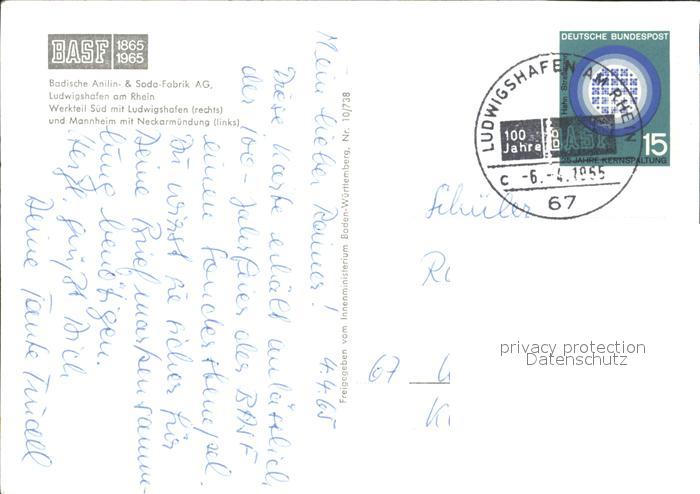 BASF 1865
1965
Badische Anilin- & Soda-Fabrik AG,
Ludwigshafen am Rhein
Werkteil Süd mit Ludwigshafen (rechts)
und Mannheim mit Neckarmündung (links)
Mein lieber Rainer!
4.4.65
Diese Karte erhält anläßlich
der 100-Jahrfeier der BASF
einen Sonderstempel.
Du wirst sie sicher für
Deine Briefmarkensamm-
lung benötigen.
Herzl. grüßt Dich
Deine Tante Trudel
Freigegeben vom Innenministerium Baden-Württemberg, Nr. 10/738
DEUTSCHE BUNDESPOST
Hahn Straßmann
15
25 JAHRE KERNSPALTUNG
LUDWIGSHAFEN AM RHEIN
100
Jahre
BASF
c -6.-4.1965
67
Schüler
Ra
67
privacy protection
Datenschutz